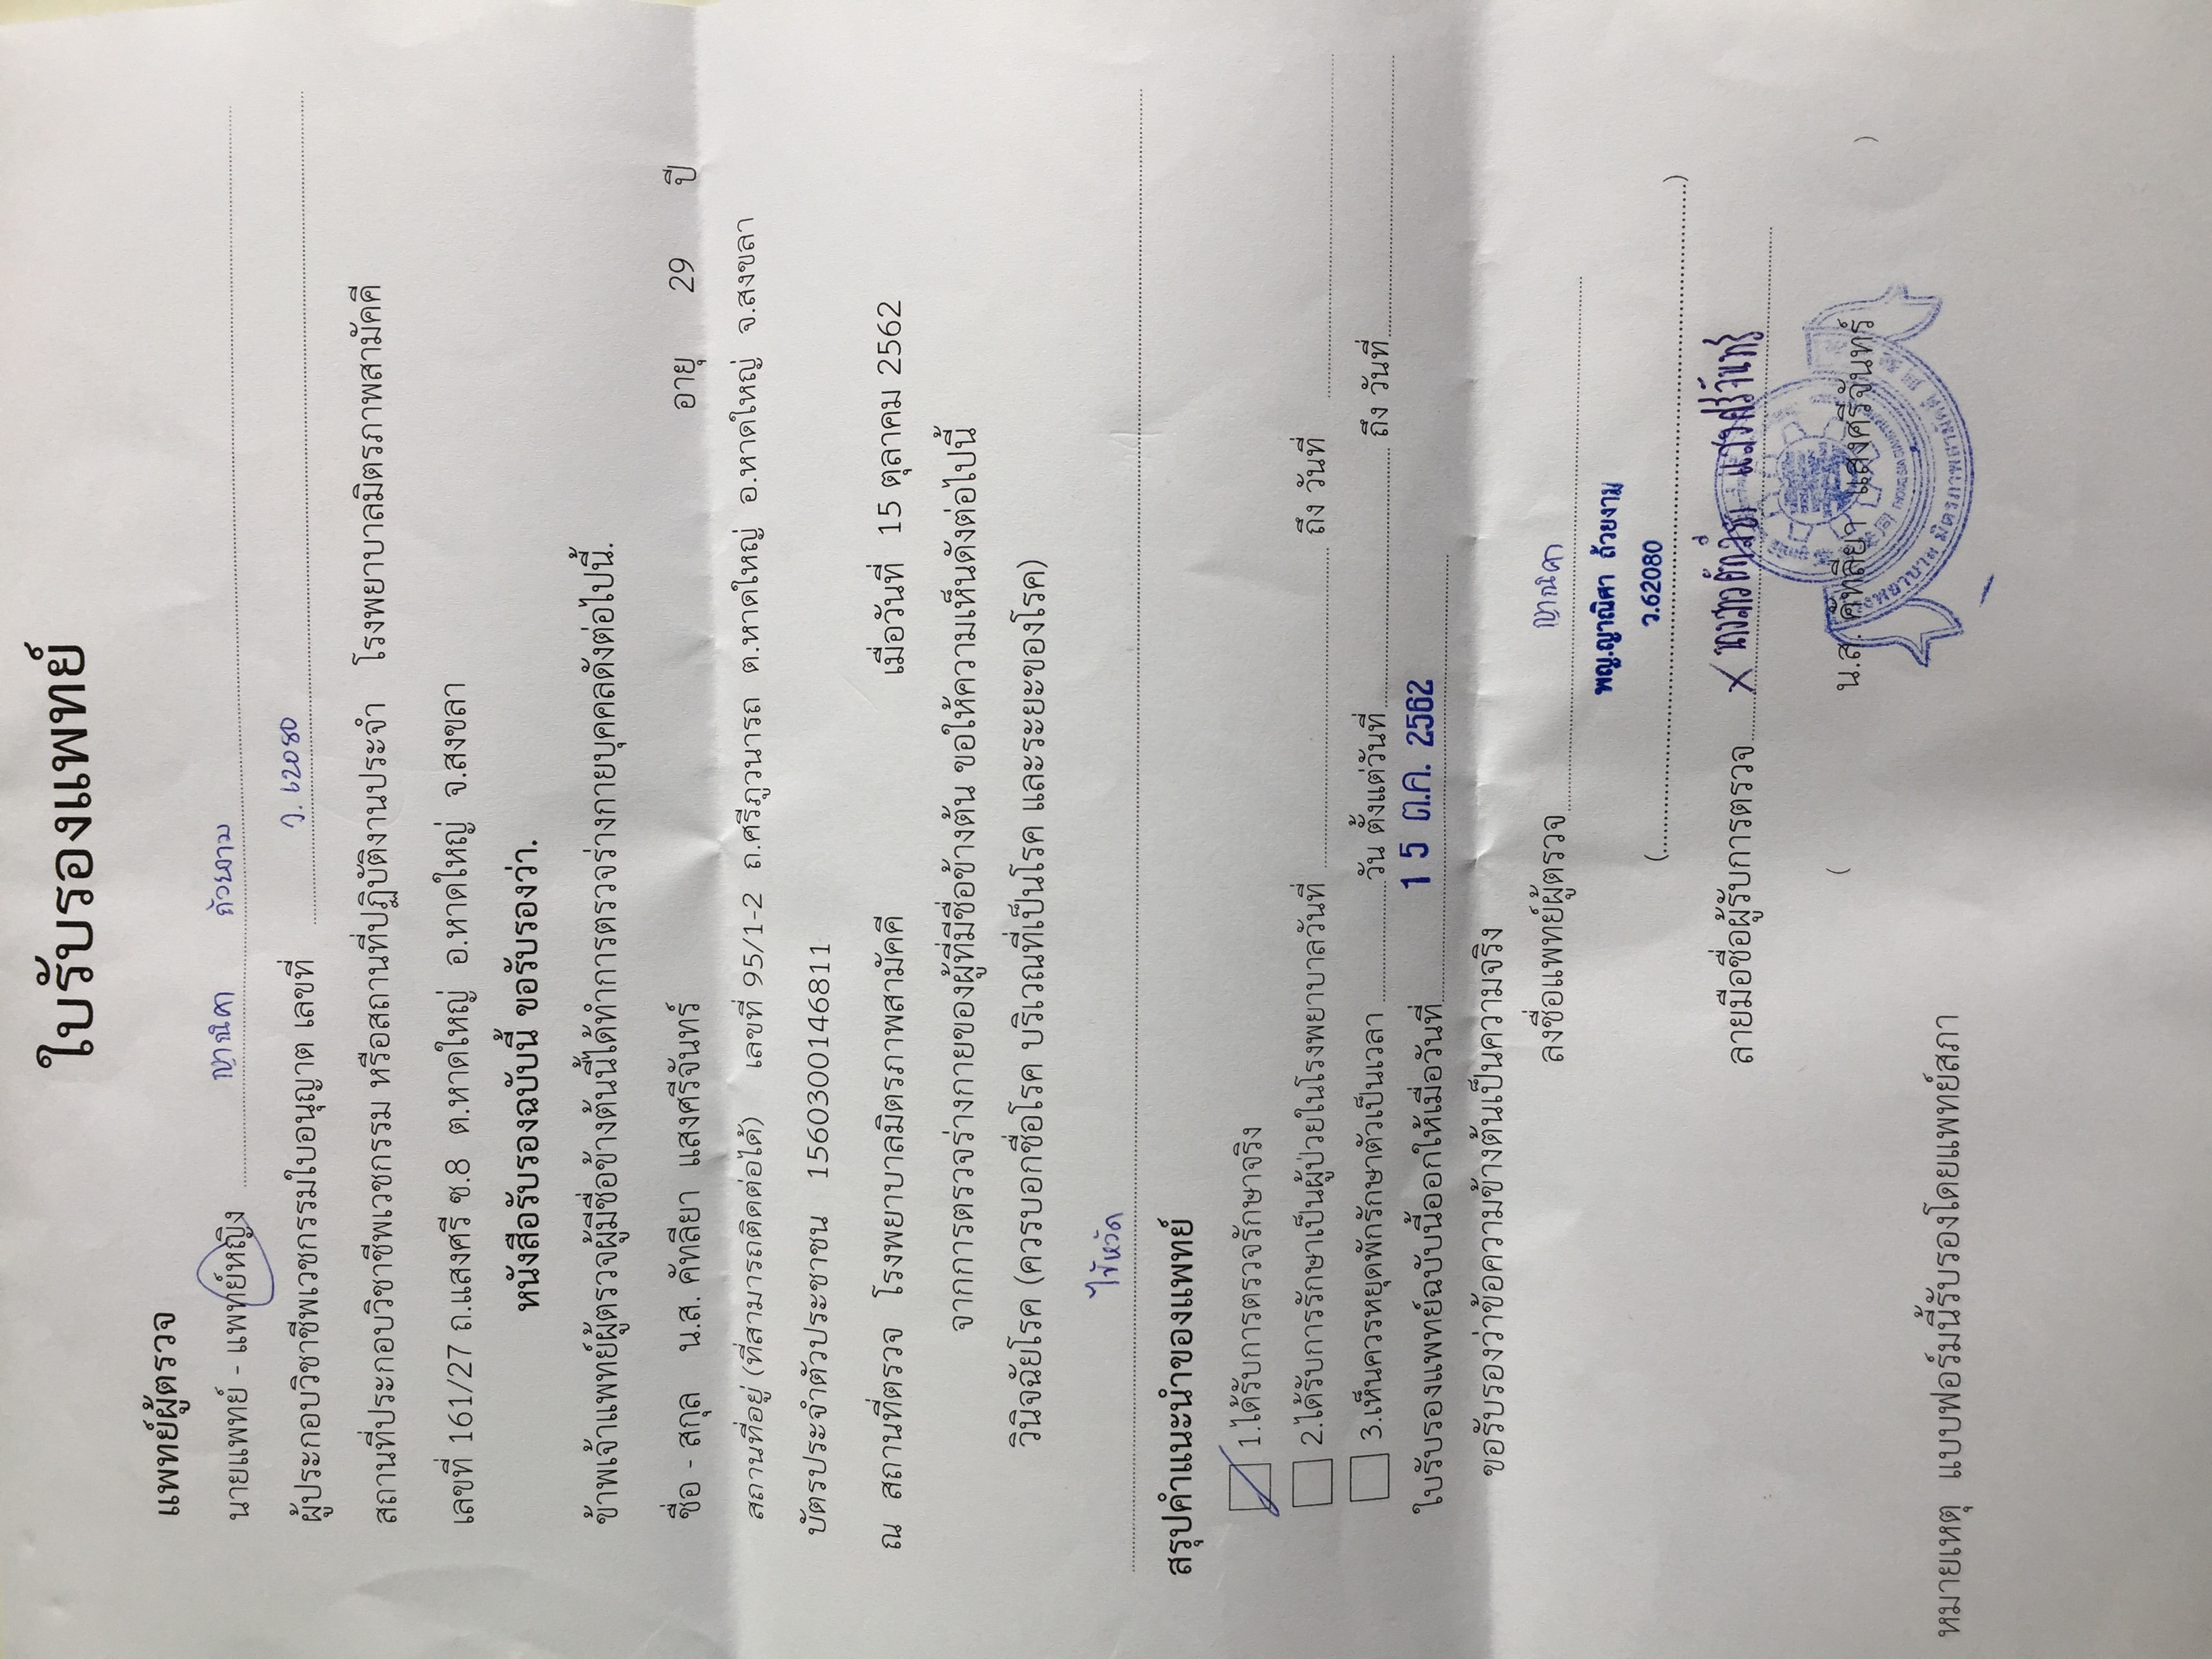 ใบรับรองแพทย์
แพทย์ผู้ตรวจ
นายแพทย์ - แพทย์หญิง ญาณิศา ถ้วยงาม
ผู้ประกอบวิชาชีพเวชกรรมใบอนุญาต เลขที่ ว. 62080
สถานที่ประกอบวิชาชีพเวชกรรม หรือสถานที่ปฏิบัติงานประจำ โรงพยาบาลมิตรภาพสามัคคี
เลขที่ 161/27 ถ.แสงศรี ซ.8 ต.หาดใหญ่ อ.หาดใหญ่ จ.สงขลา
หนังสือรับรองฉบับนี้ ขอรับรองว่า.
ข้าพเจ้าแพทย์ผู้ตรวจผู้มีชื่อข้างต้นนี้ได้ทำการตรวจร่างกายบุคคลดังต่อไปนี้.
ชื่อ - สกุล น.ส. คัทลียา แสงศรีจันทร์ อายุ 29 ปี
สถานที่อยู่ (ที่สามารถติดต่อได้) เลขที่ 95/1-2 ถ.ศรีภูวนารถ ต.หาดใหญ่ อ.หาดใหญ่ จ.สงขลา
บัตรประจำตัวประชาชน 1560300146811
ณ สถานที่ตรวจ โรงพยาบาลมิตรภาพสามัคคี เมื่อวันที่ 15 ตุลาคม 2562
จากการตรวจร่างกายของผู้ที่มีชื่อข้างต้น ขอให้ความเห็นดังต่อไปนี้
วินิจฉัยโรค (ควรบอกชื่อโรค บริเวณที่เป็นโรค และระยะของโรค)
ไข้หวัด
สรุปคำแนะนำของแพทย์
1.ได้รับการตรวจรักษาจริง
2.ได้รับการรักษาเป็นผู้ป่วยในโรงพยาบาลวันที่ ถึง วันที่
3.เห็นควรหยุดพักรักษาตัวเป็นเวลา วัน ตั้งแต่วันที่ ถึง วันที่
ใบรับรองแพทย์ฉบับนี้ออกให้เมื่อวันที่ 15 ต.ค. 2562
ขอรับรองว่าข้อความข้างต้นเป็นความจริง
ลงชื่อแพทย์ผู้ตรวจ ญาณิศา
พญ.ญาณิศา ถ้วยงาม
(ว.62080)
ลายมือชื่อผู้รับการตรวจ x นางสาวคัทลียา แสงศรีจันทร์
( น.ส. คัทลียา แสงศรีจันทร์ )
มิตรภาพสามัคคี
หมายเหตุ แบบฟอร์มนี้รับรองโดยแพทย์สภา